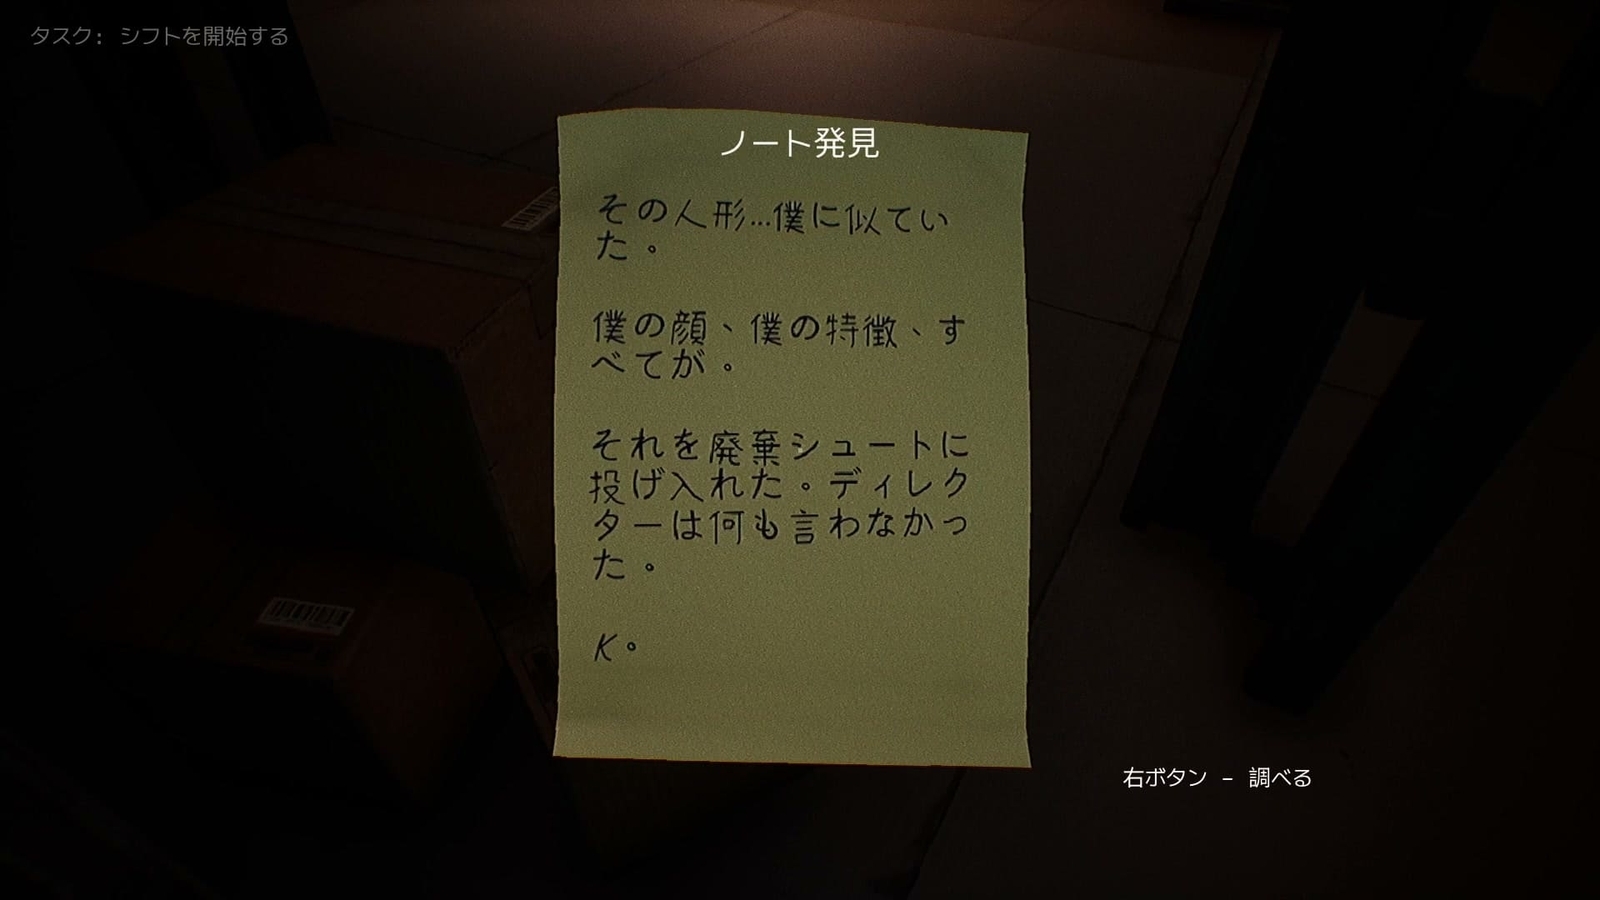 タスク: シフトを開始する
ノート発見
その人形…僕に似てい
た。
僕の顔、僕の特徴、す
べてが。
それを廃棄シュートに
投げ入れた。ディレク
ターは何も言わなかっ
た。
K。
右ボタン - 調べる